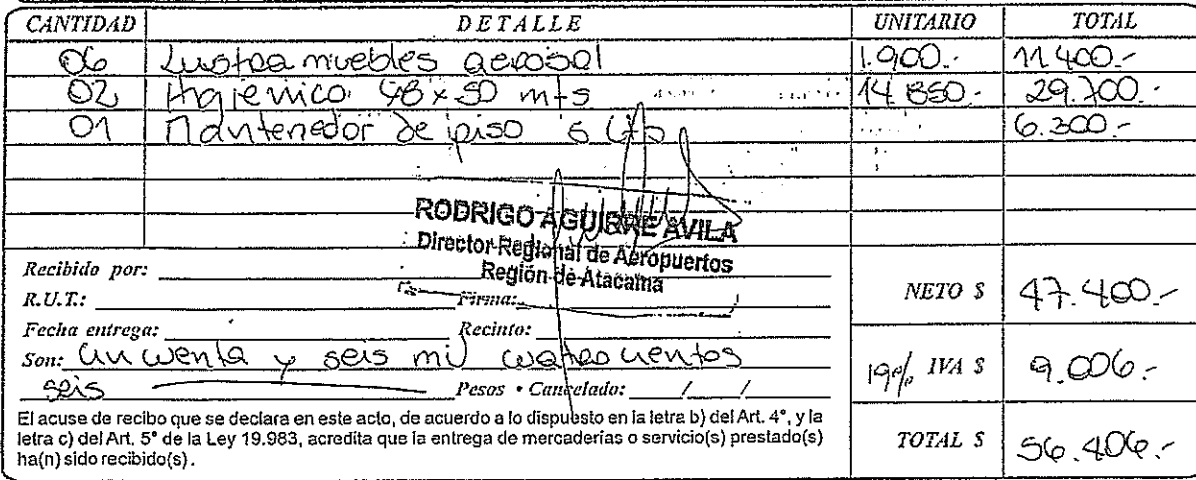 CANTIDAD DETALLE UNITARIO TOTAL
06 Lustra muebles aerosol 1.900.- 11.400.-
02 Higienico 48 x 50 mts 14.850.- 29.700.-
01 Mantenedor de piso 5 Lts 6.300.-
RODRIGO AGUIRRE AVILA
Director Regional de Aeropuertos
Región de Atacama
Recibido por:
R.U.T.: Firma:
NETO $ 47.400.-
Fecha entrega: Recinto:
Son: Cincuenta y seis mil cuatrocientos
19% IVA $ 9.006.-
seis Pesos • Cancelado: / /
El acuse de recibo que se declara en este acto, de acuerdo a lo dispuesto en la letra b) del Art. 4°, y la
letra c) del Art. 5° de la Ley 19.983, acredita que la entrega de mercaderías o servicio(s) prestado(s)
ha(n) sido recibido(s).
TOTAL $ 56.406.-